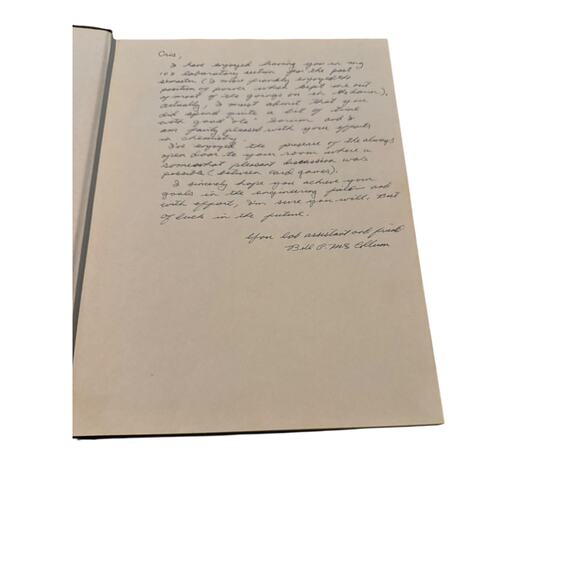 Cris,
I have enjoyed having you in my
103 laboratory section for the past
semester (I most probably enjoyed the
position of power which kept me out
of most of the goings on in the dorm).
Actually, I must admit that you
did spend quite a bit of time
with good "ole" and I
am fairly pleased with your efforts
in chemistry.
I've enjoyed the presence of the always
open door to your room where a
somewhat pleasant discussion was
possible (between card games).
I sincerely hope you achieve your
goals in the engineering field and
with effort, I'm sure you will. Best
of luck in the future.
Your lab assistant and friend
Bill P. McCollum